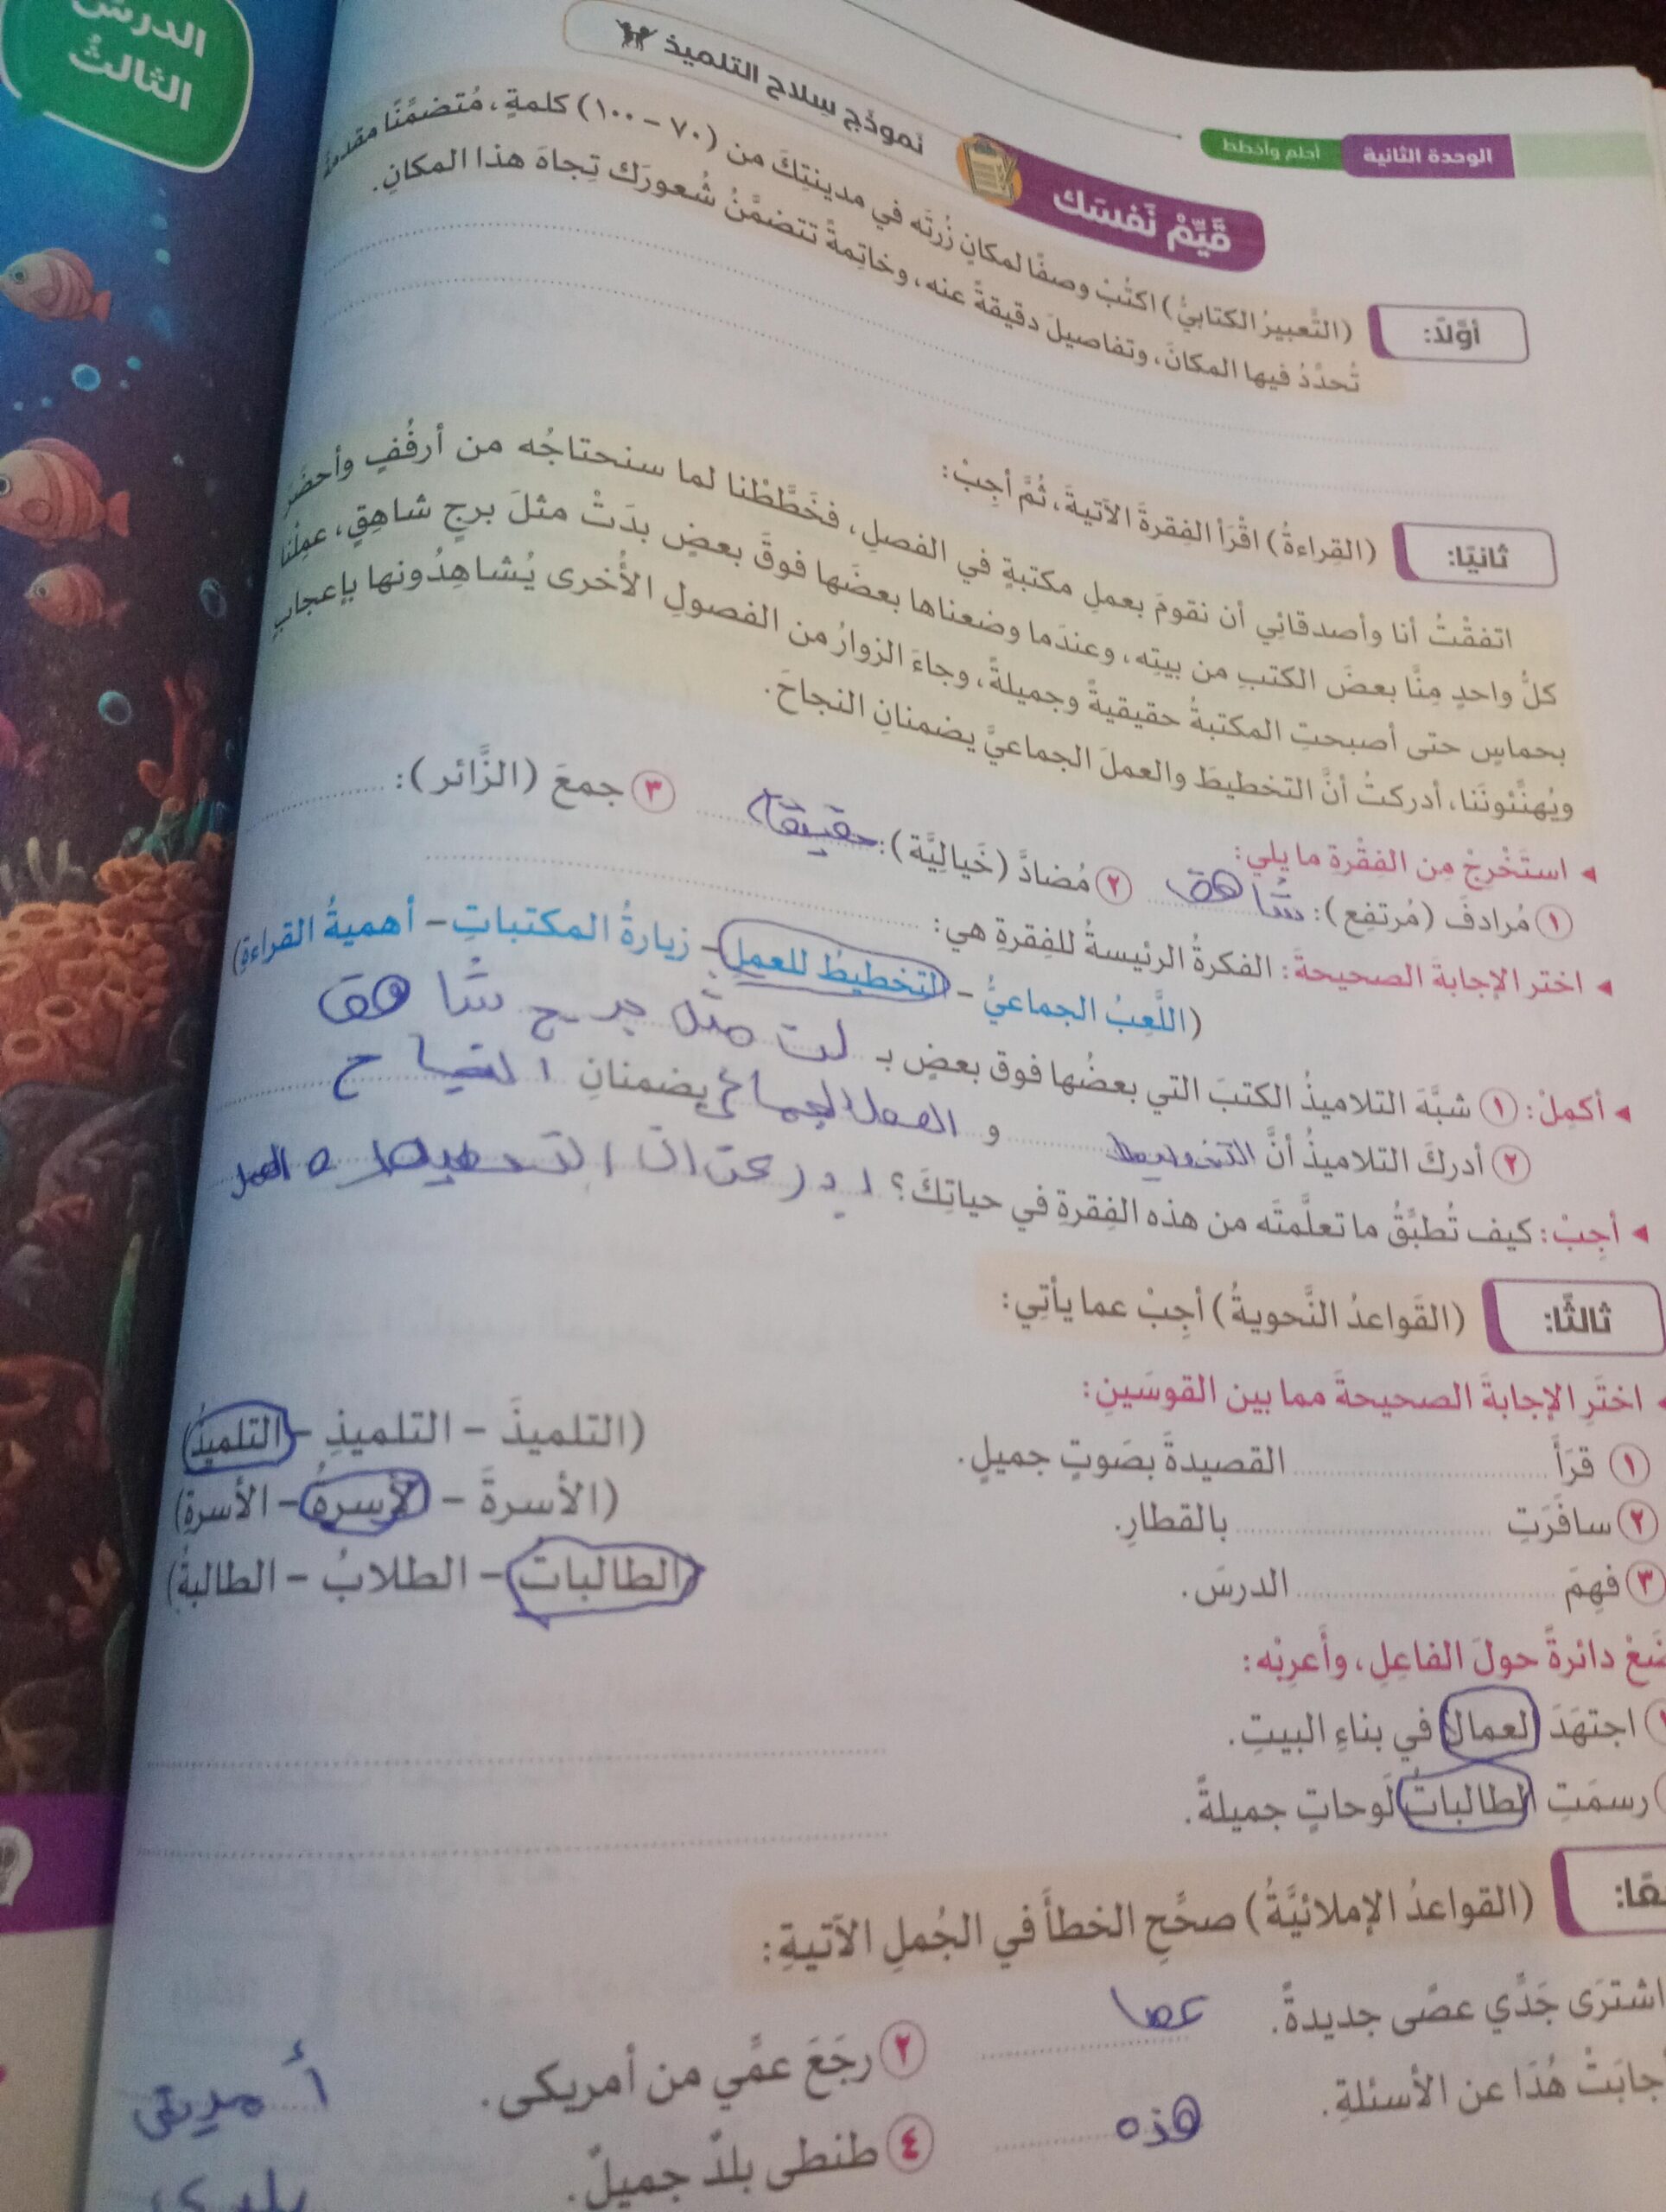 الدرس
الثالثُ
الوحدة الثانية أحلم وأخطط
نموذج سلاح التلميذ
قَيِّمْ نَفسَك
أوَّلًا: (التَّعبيرُ الكتابيُّ) اكتُبْ وصفًا لمكانٍ زُرتَه في مدينتِكَ من (٧٠ – ١٠٠) كلمةٍ، مُتضمِّنًا مقدمةً
تُحدِّدُ فيها المكانَ، وتفاصيلَ دقيقةً عنه، وخاتِمةً تتضمَّنُ شُعورَك تِجاهَ هذا المكانِ.
ثانيًا: (القِراءةُ) اقْرَأ الفِقرةَ الآتيةَ، ثُمَّ أجِبْ:
اتفقْتُ أنا وأصدقائِي أن نقومَ بعملِ مكتبةٍ في الفصلِ، فخَطَّطْنا لما سنحتاجُه من أرفُفٍ وأحضَر
كلُّ واحدٍ مِنَّا بعضَ الكتبِ من بيتِه، وعندَما وضعناها بعضَها فوقَ بعضٍ بدَتْ مثلَ برجٍ شاهِقٍ، عمِلْنا
بحماسٍ حتى أصبحتِ المكتبةُ حقيقيةً وجميلةً، وجاءَ الزوارُ من الفصولِ الأُخرى يُشاهِدُونها بإعجابٍ
ويُهنِّئونَنا، أدركتُ أنَّ التخطيطَ والعملَ الجماعيَّ يضمنانِ النجاحَ.
◂ استَخْرِجْ مِن الفِقْرةِ ما يلي:
① مُرادفَ (مُرتفِع): شاهق ② مُضادَّ (خَيالِيَّة): حقيقة ③ جمعَ (الزَّائر):
◂ اختر الإجابةَ الصحيحةَ: الفكرةُ الرئيسةُ للفِقرةِ هي:
(اللَّعِبُ الجماعيُّ – التخطيطُ للعملِ – زيارةُ المكتباتِ – أهميةُ القراءةِ)
◂ أكمِلْ: ① شبَّهَ التلاميذُ الكتبَ التي بعضُها فوق بعضٍ بـ لت مثل برج شاهق
② أدركَ التلاميذُ أنَّ التخطيط و العمل الجماعي يضمنانِ النجاح
◂ أجِبْ: كيف تُطبِّقُ ما تعلَّمتَه من هذه الفِقرةِ في حياتِكَ؟ ادركت ان التخطيط و العمل
ثالثًا: (القَواعدُ النَّحويةُ) أجِبْ عما يأتِي:
اختَرِ الإجابةَ الصحيحةَ مما بين القوسَينِ:
① قرَأَ القصيدةَ بصَوتٍ جميلٍ. (التلميذَ – التلميذِ – التلميذُ)
② سافَرَتِ بالقطارِ. (الأسرةَ – الأسرةُ – الأسرةِ)
③ فهِمَ الدرسَ. (الطالباتُ – الطلابُ – الطالبةُ)
ضَعْ دائرةً حولَ الفاعِلِ، وأَعرِبْه:
اجتهَدَ العمالُ في بناءِ البيتِ.
رسمَتِ الطالباتُ لَوحاتٍ جميلةً.
(القواعدُ الإملائيَّةُ) صحِّحِ الخطأَ في الجُملِ الآتيةِ:
اشترَى جَدِّي عصًى جديدةً. عصا ② رجَعَ عمِّي من أمريكى.
جابَتْ هُدَا عن الأسئلةِ. هذه ④ طنطى بلدٌ جميلٌ.